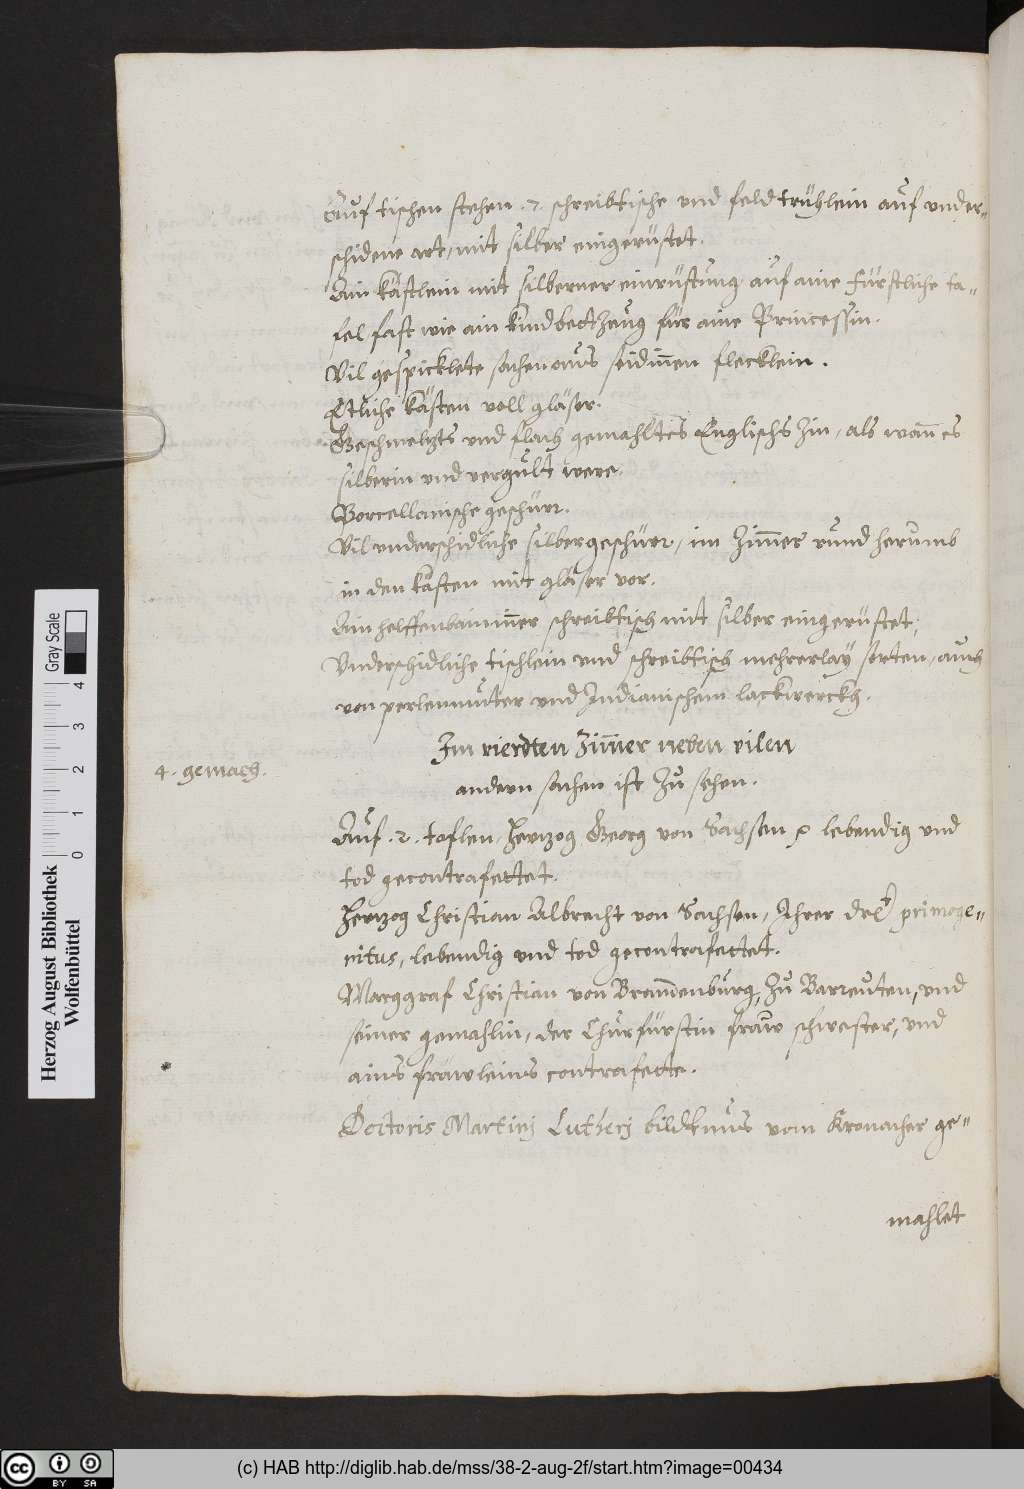 Auf tischen stehen .7. schreibtische vnd feldtrühlein auf vnder-
schidene art, mit silber eingerüstet.
Ain kästlein mit silberner einrüstung auf aine fürstliche ta-
fel fast wie ain kindbettzeug für aine Princessin.
Vil gespicklete sachen aus seidinen flecklein.
Etliche kästen voll gläser.
Geschmeltzts vnd flach gemahltes Englischs Zin, als wann es
silberin vnd vergült were.
Porcellanische geschürr.
Vil vnderschidliche silbergeschürr, im Zimmer rund herumb
in den kästen mit gläser vor.
Ain helffenbaininer schreibtisch mit silber eingerüstet,
Vnderschidliche tischlein vnd schreibtisch mehrerlay sorten, auch
von perlenmuter vnd Indianischem lackwerckh.
Im vierdten Zimmer neben vilen
4. gemach.
andern sachen ist Zu sehen.
Auf .2. taflen, Hertzog Georg von Sachsen lebendig vnd
tod gecontrafettet.
Hertzog Christian Albrecht von Sachsen, Ihrer primoge-
nitus, lebendig vnd tod gecontrafettet.
Marggraf Christian von Brandenburg, Zu Barreuten, vnd
seiner gemahlin, der Churfürstin fraw schwester, vnd
ains fräwleins contrafette.
Doctoris Martini Lutherj bildtnus vom Kronacher ge-
mahlet
Herzog August Bibliothek
Wolfenbüttel
0 1 2 3 4
Gray Scale
(c) HAB http://diglib.hab.de/mss/38-2-aug-2f/start.htm?image=00434
cc BY SA